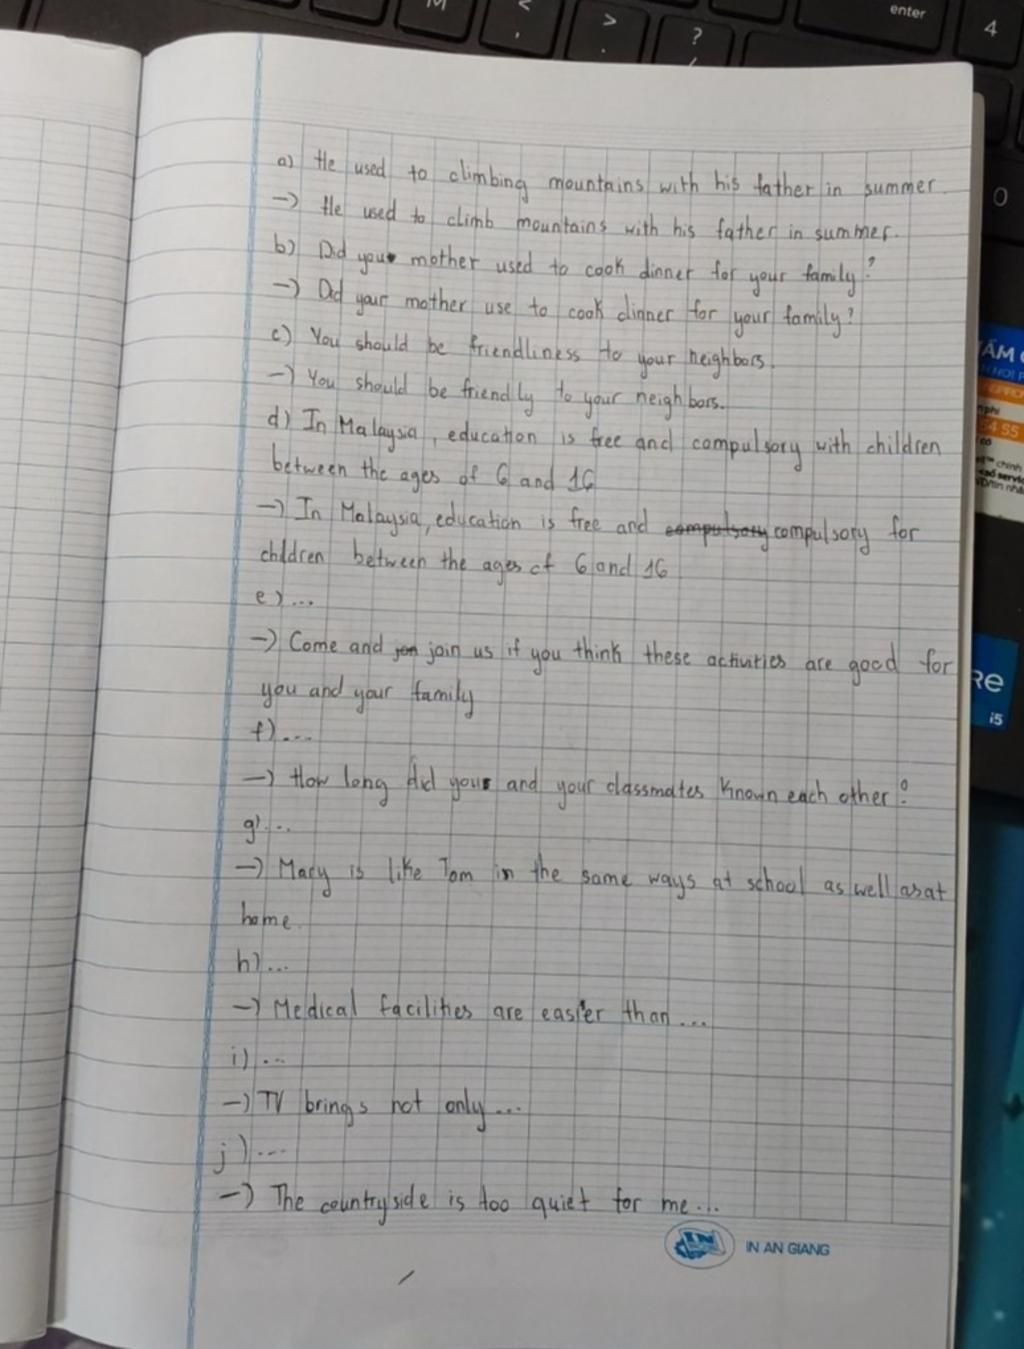 M
<
,
>
.
?
/
enter
4
0
a) He used to climbing mountains with his father in summer.
-> He used to climb mountains with his father in summer.
b) Did your mother used to cook dinner for your family?
-> Did your mother use to cook dinner for your family?
c) You should be friendliness to your neighbors.
-> You should be friendly to your neighbors.
d) In Malaysia, education is free and compulsory with children
between the ages of 6 and 16
-> In Malaysia, education is free and compulsory compulsory for
children between the ages of 6 and 16
e) ...
-> Come and join us if you think these activities are good for
you and your family
f) ...
-> How long did you and your classmates known each other?
g) ...
-> Mary is like Tom in the same ways at school as well as at
home.
h) ...
-> Medical facilities are easier than ...
i) ...
-> TV brings not only ...
j) ...
-> The countryside is too quiet for me ...
IN AN GIANG
54 55
Re
i5